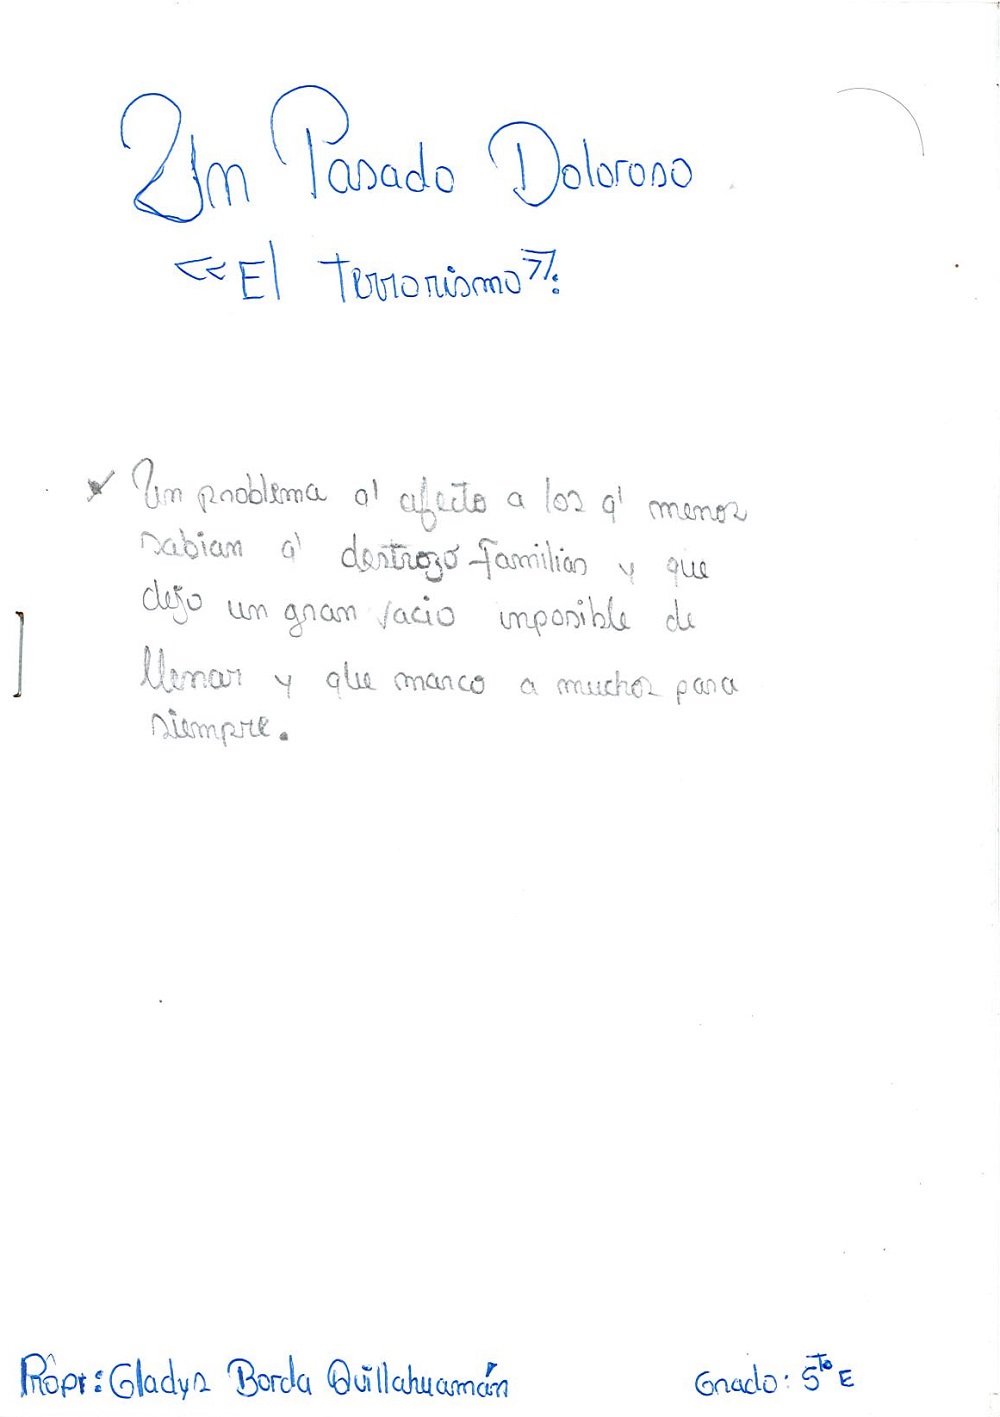 Un Pasado Doloroso
<<El terrorismo>>:
Un problema q' afecto a los q' menos
sabian q' destrozó familias y que
dejo un gran vacio inposible de
llenar y que marco a muchos para
siempre.
Prop: Gladys Borda Quillahuamán
Grado: 5to E